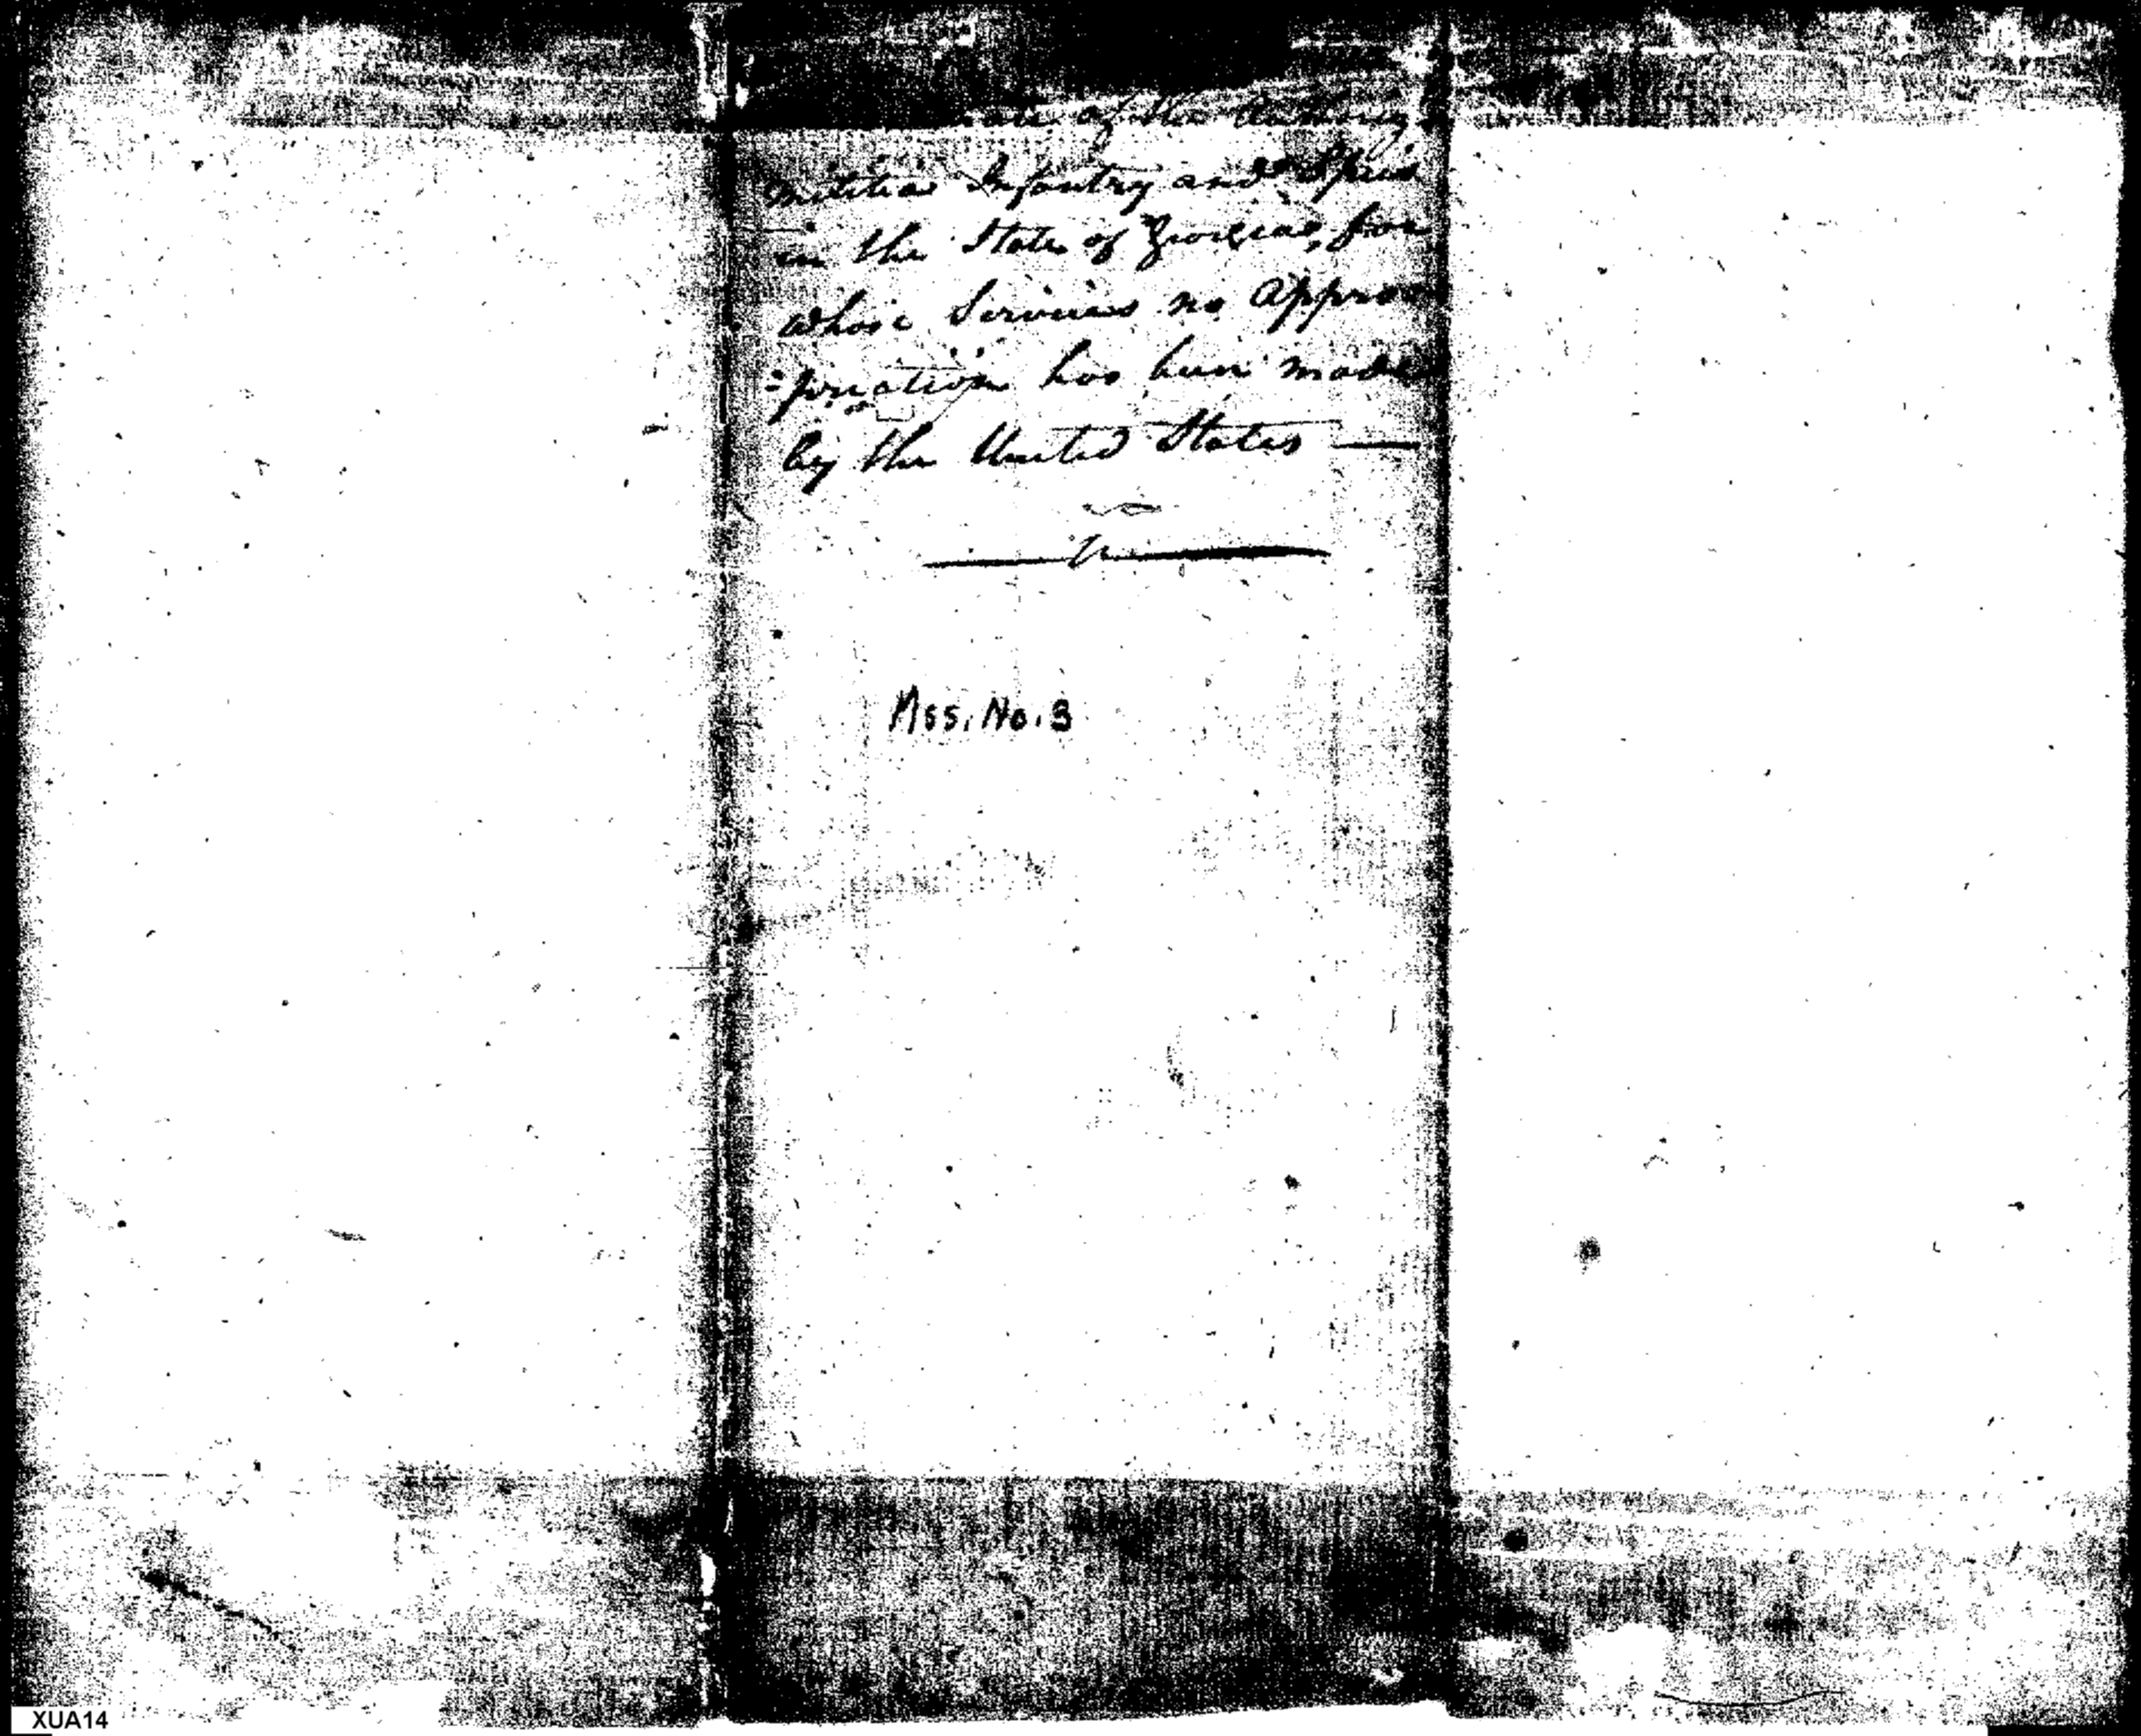 of the
Militia Infantry and Spies
in the State of Georgia, for
whose Services no Appro
=priation has been made
by the United States —
Mss. No. 3
XUA14